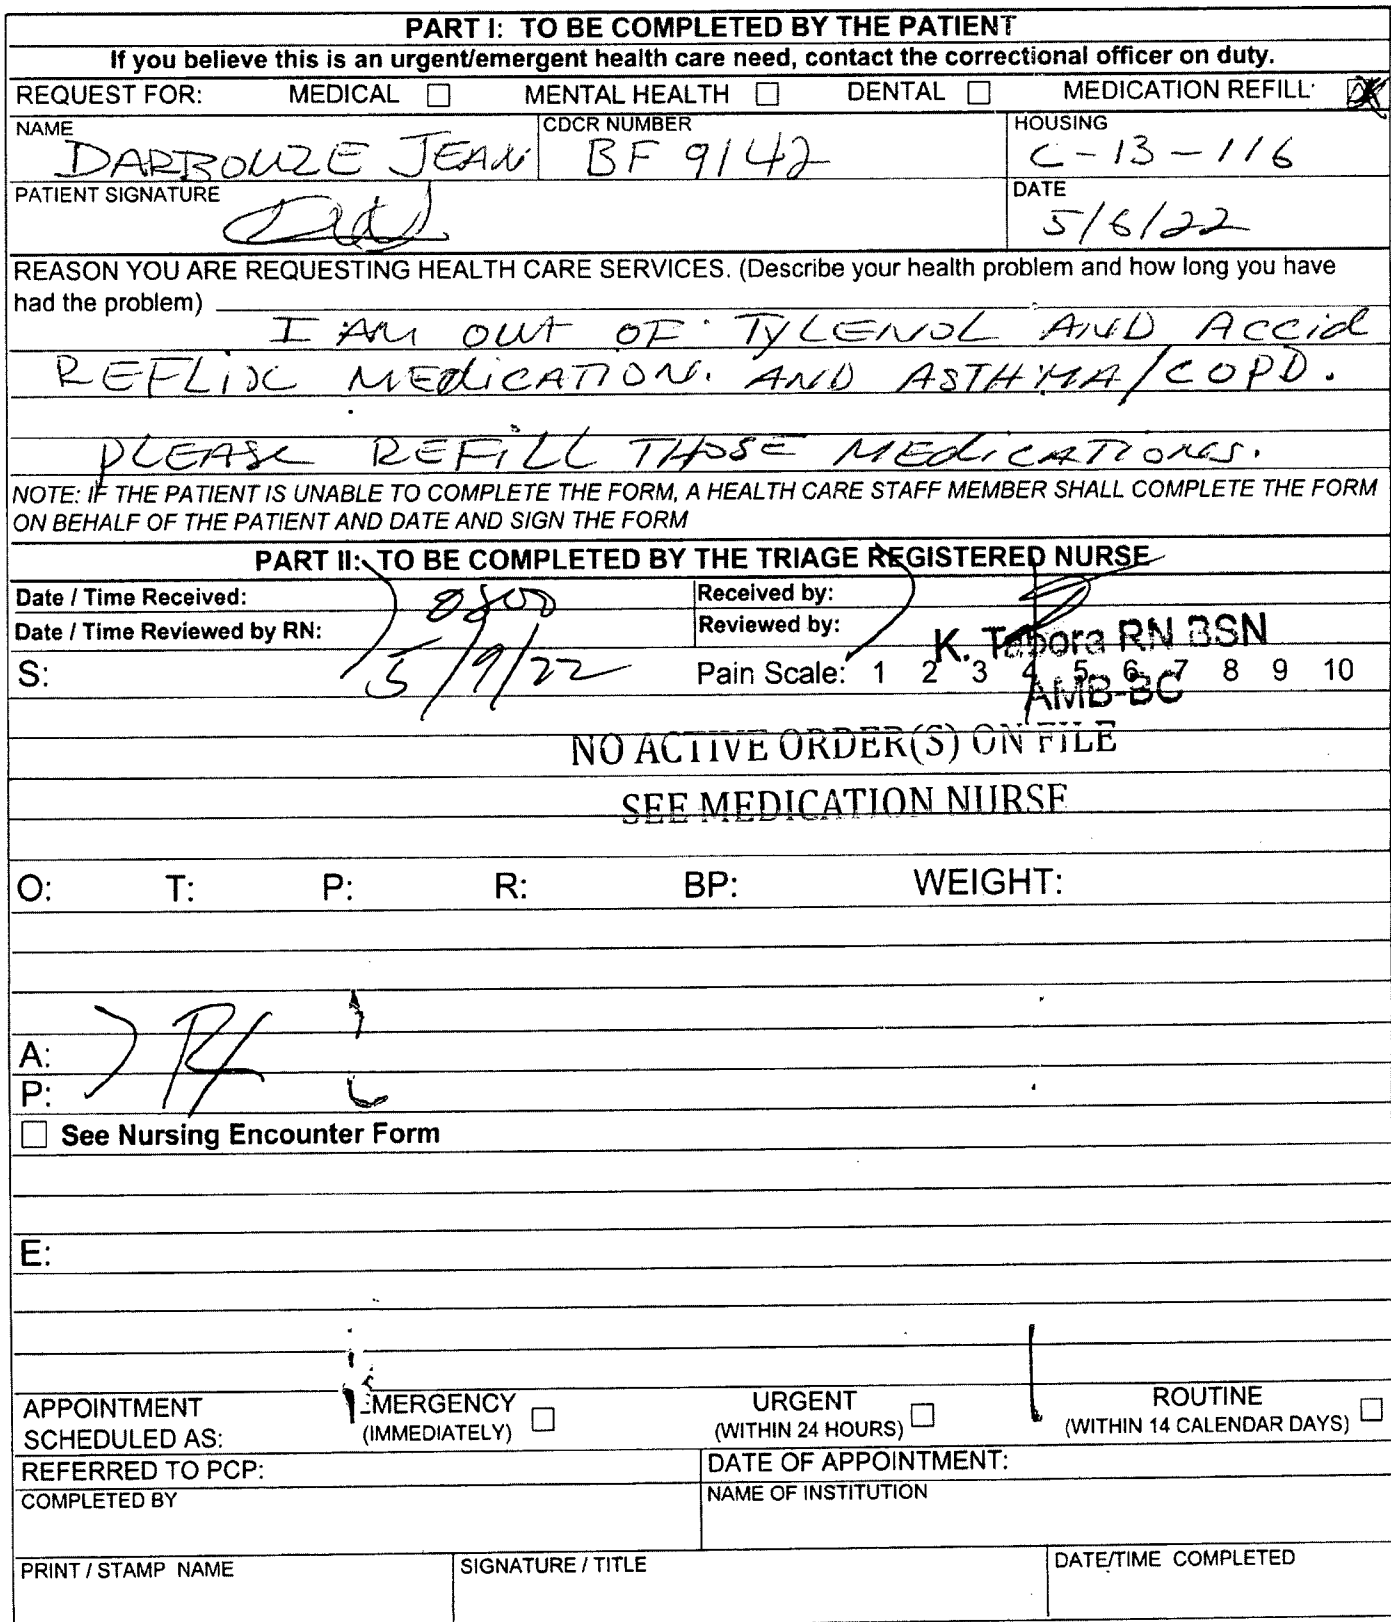 PART I: TO BE COMPLETED BY THE PATIENT
If you believe this is an urgent/emergent health care need, contact the correctional officer on duty.
REQUEST FOR: MEDICAL ☐ MENTAL HEALTH ☐ DENTAL ☐ MEDICATION REFILL ☒
NAME CDCR NUMBER HOUSING
DARBOUZE JEAN BF 9142 C-13-116
PATIENT SIGNATURE DATE
5/6/22
REASON YOU ARE REQUESTING HEALTH CARE SERVICES. (Describe your health problem and how long you have
had the problem)
I AM OUT OF TYLENOL AND Accid
REFLIX MEDICATION. AND ASTHMA/COPD.
PLEASE REFILL THOSE MEDICATIONS.
NOTE: IF THE PATIENT IS UNABLE TO COMPLETE THE FORM, A HEALTH CARE STAFF MEMBER SHALL COMPLETE THE FORM
ON BEHALF OF THE PATIENT AND DATE AND SIGN THE FORM
PART II: TO BE COMPLETED BY THE TRIAGE REGISTERED NURSE
Date / Time Received: 0800 Received by:
Date / Time Reviewed by RN: Reviewed by: K. Tabora RN BSN
S: 5/9/22 Pain Scale: 1 2 3 4 5 6 7 8 9 10
AMB-BC
NO ACTIVE ORDER(S) ON FILE
SEE MEDICATION NURSE
O: T: P: R: BP: WEIGHT:
A:
P:
☐ See Nursing Encounter Form
E:
APPOINTMENT EMERGENCY ☐ URGENT ☐ ROUTINE ☐
SCHEDULED AS: (IMMEDIATELY) (WITHIN 24 HOURS) (WITHIN 14 CALENDAR DAYS)
REFERRED TO PCP: DATE OF APPOINTMENT:
COMPLETED BY NAME OF INSTITUTION
PRINT / STAMP NAME SIGNATURE / TITLE DATE/TIME COMPLETED